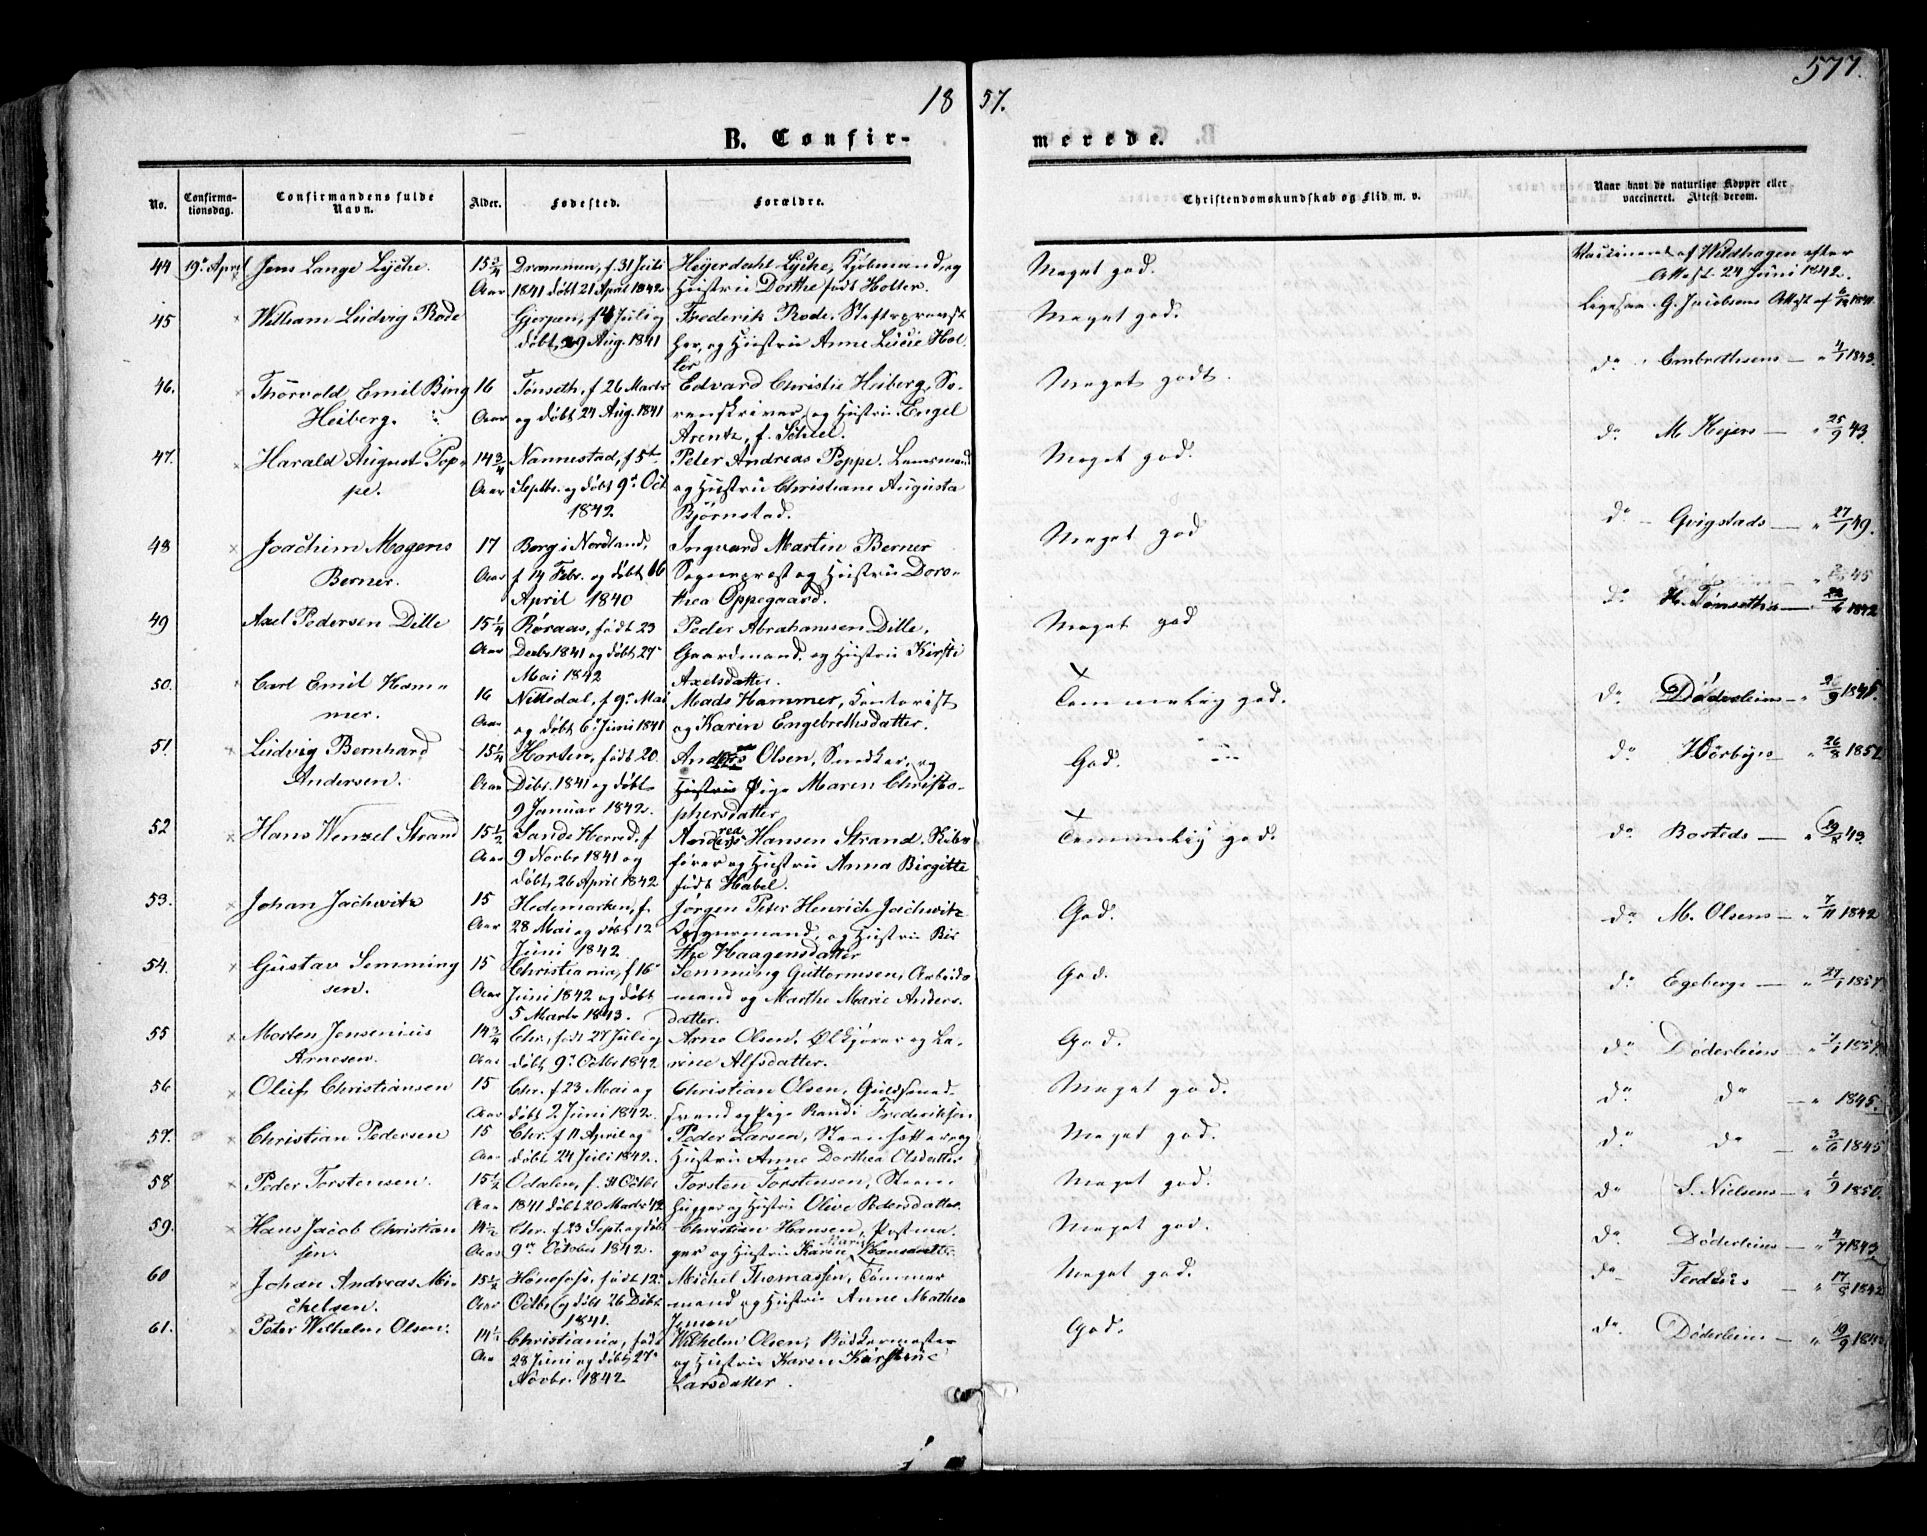 577.
18 57.
B. Confir- merede.
No. Confirma-tionsdag. Confirmandens fulde Navn. Alder. Fødested. Forældre. Christendomskundskab og Flid m. v. Naar havt de naturlige Kopper eller vaccineret. Attest derom.
44 19de April Jens Lange Lyche. 15 3/4 Drammen, f. 31 Juli Heyerdahl Lyche, Kjøbmand, og Meget god. Vaccineret af Wildhagen efter
Aar 1841 døbt 21 April 1842 Hustru Dorthe født Holter. Attest 24 Juni 1842.
45 William Ludvig Rode Gjerpen, f 4 Juli og Frederik Rode, Meget god. Ligesaa G. Jacobsens Attest af
døbt 29 Aug. 1841 og Hustru Anne Lucie Hol-
ler
46. Thorvald Emil Bing 16 Tønseth, f 26 Marts Edvard Christie Heiberg, So- Meget godt. do Embrethsens — 4/1 1843.
Heiberg. Aar og døbt 24 Aug. 1841 renskriver, og Hustru Engel
Arentz, f.
47. Harald August Pop- 14 3/4 Nannestad, f 5te Peter Andreas Poppe. Lensmand Meget god. do M. Kejers — 25/9 43.
pe. Aar Septbr. og døbt 9de Oct og Hustru Christiane Augusta
1842 Bjørnstad.
48 Joachim Mogens 17 Borg i Nordland, Ingvard Martin Berner Meget god do Qvigstads — 27/1 49.
Berner. Aar f 14 Febr. og døbt 16 Sogneprest og Hustru Doro-
April 1840 thea Oppegaard.
49 Axel Pedersen Dille 15 1/4 Røraas, født 23 Peder Abrahamsen Dille, Meget god do Hr. Tønseths — 1842
Aar Decbr 1841 og døbt 27de Gaardmand, og Hustru Kirsti
Mai 1842 Axelsdatter.
50. Carl Emil Ham- 16 Nittedal, f 9de Mai Mads Hammer, Kontorist Temmelig god. do Døderleins — 1845.
mer. Aar og døbt 6 Juni 1841 og Karin Engebrethsdatter.
51. Ludvig Bernhard 15 1/4 Horten, født 20. Anders Olsen, Snedker, og God. do Hørbyes — 26/8 1851
Andersen. Aar Decbr. 1841 og døbt Pige Maren Christo-
9 Januar 1842. phersdatter
52 Hans Wenzel Strand 15 1/2 Sande Herred, f Andreas Hansen Strand. Temmelig god. do Borteds — 29/8 43.
Aar 9 Novbr 1841 og og Hustru Anna Birgitte
døbt 26 April 1842 født Habel.
53. Johan Jachwitz 15 Hedemarken, f. Jørgen Peter Henrich Jachwitz God. do M. Olsens — 7/11 1842
Aar 28 Mai og døbt 12 og Hustru Bir
Juni 1842 the Haagensdatter
54. Gustav Semming 15 Christiania, f 16de Semming Guttormsen, Arbeids God. do Egebergs — 27/1 1857.
sen. Aar Juni 1842 og døbt mand og Marthe Marie Anders-
5 Marts 1843. datter.
55 Morten Jensenius 14 3/4 Chr., født 27 Juli og Arne Olsen, Ølkjører og La- God. do Døderleins 1857.
Arnesen. Aar døbt 9de Octbr 1842 rine Alfsdatter.
56 Oluf Christiansen 15 Chr. f 23 Mai og Christian Olsen, Guldsmed Meget god. do do — 1845.
Aar døbt 2 Juni 1842. svend og Pige Randi Frederiksen
57. Christian Pedersen 15 Chr. f 11 April og Peder Larsen, Steensætter og Meget god. do do — 3/6 1845
Aar døbt 24 Juli 1842. Hustru Anne Dorthea Olsdatter
58 Peder Torstensen. 15 1/2 Odalen, f. 31 Octbr Torsten Torstensen, Steen Meget god. do S. Nielsens — 1/9 1850.
Aar 1841 døbt 20 Marts 42 hugger og Hustru Olive Pedersdatter.
59. Hans Jacob Christian 14 1/2 Chr. f 23 Sept. og døbt Christian Hansen, Meget god. do Døderleins — 4/7 1843
sen. Aar 9de October 1842. og Hustru Karen Marie Hansdatter.
60 Johan Andreas Mi- 15 1/2 Hønefoss, født 12te Michel Thomassen, Tømmer Meget god. do — 17/8 1842
chelsen. Aar Octbr. og døbt 26 Decbr mand og Hustru Anne Mathea
1841.
61. Peter Wilhelm Olsen. 14 1/2 Christiania, født Wilhelm Olsen, Bødkermester God. do Døderleins — 19/9
Aar 28 Juni og døbt 27de og Hustru Karen Kirstine
Novbr. 1842 Larsdatter.